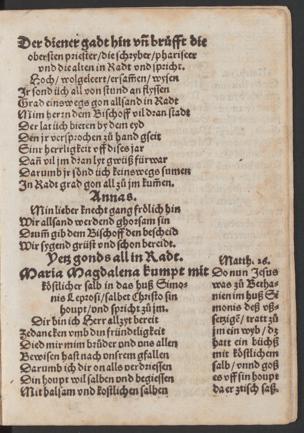 Der diener gadt hin vñ brüfft die
obersten priester / die schryber / phariseer
vnd die alten in Radt vnd spricht.
Hoch / wolgeleert / ersamen / wysen
Ir sond üch all von stund an flyssen
Grad einswegs gon allsand in Radt
Mim herrn dem Bischoff vil dran stadt
Der lat üch bieten by dem eyd
Den jr versprochen zů hand gseit
Sinr herrligkeit vff dises jar
Dañ vil jm dran lyt gwüß fürwar
Darumb jr sönd üch keinswegs sumen
In Radt grad gon all zů jm kum̃en.
Annas.
Min lieber knecht gang frölich hin
Wir allsand werdend ghorsam sin
Drum̃ gib dem Bischoff den bescheid
Wir sygend grüst vnd schon bereidt.
Yetz gonds all in Radt.
Maria Magdalena kumpt mit
köstlicher salb in das huß Simo-
nis Leprosi / salbet Christo sin
houpt / vnd spricht zů jm.
Dir bin ich Herr allzyt bereit
Zedancken vmb din fründtligkeit
Died mir mim brůder vnd vns allen
Bewisen hast nach vnsrem gfallen
Darumb ich dir on alls verdriessen
Din houpt wil salben vnd begiessen
Mit balsam vnd kostlichen salben
Matth. 26.
Do nun Jesus
was zů Betha-
nien im huß Si
monis deß vß-
setzigē / tratt zů
jm ein wyb / dz
hatt ein büchß
mit köstlichem
salb / vnnd goß
es vff sin houpt
da er ztisch saß.